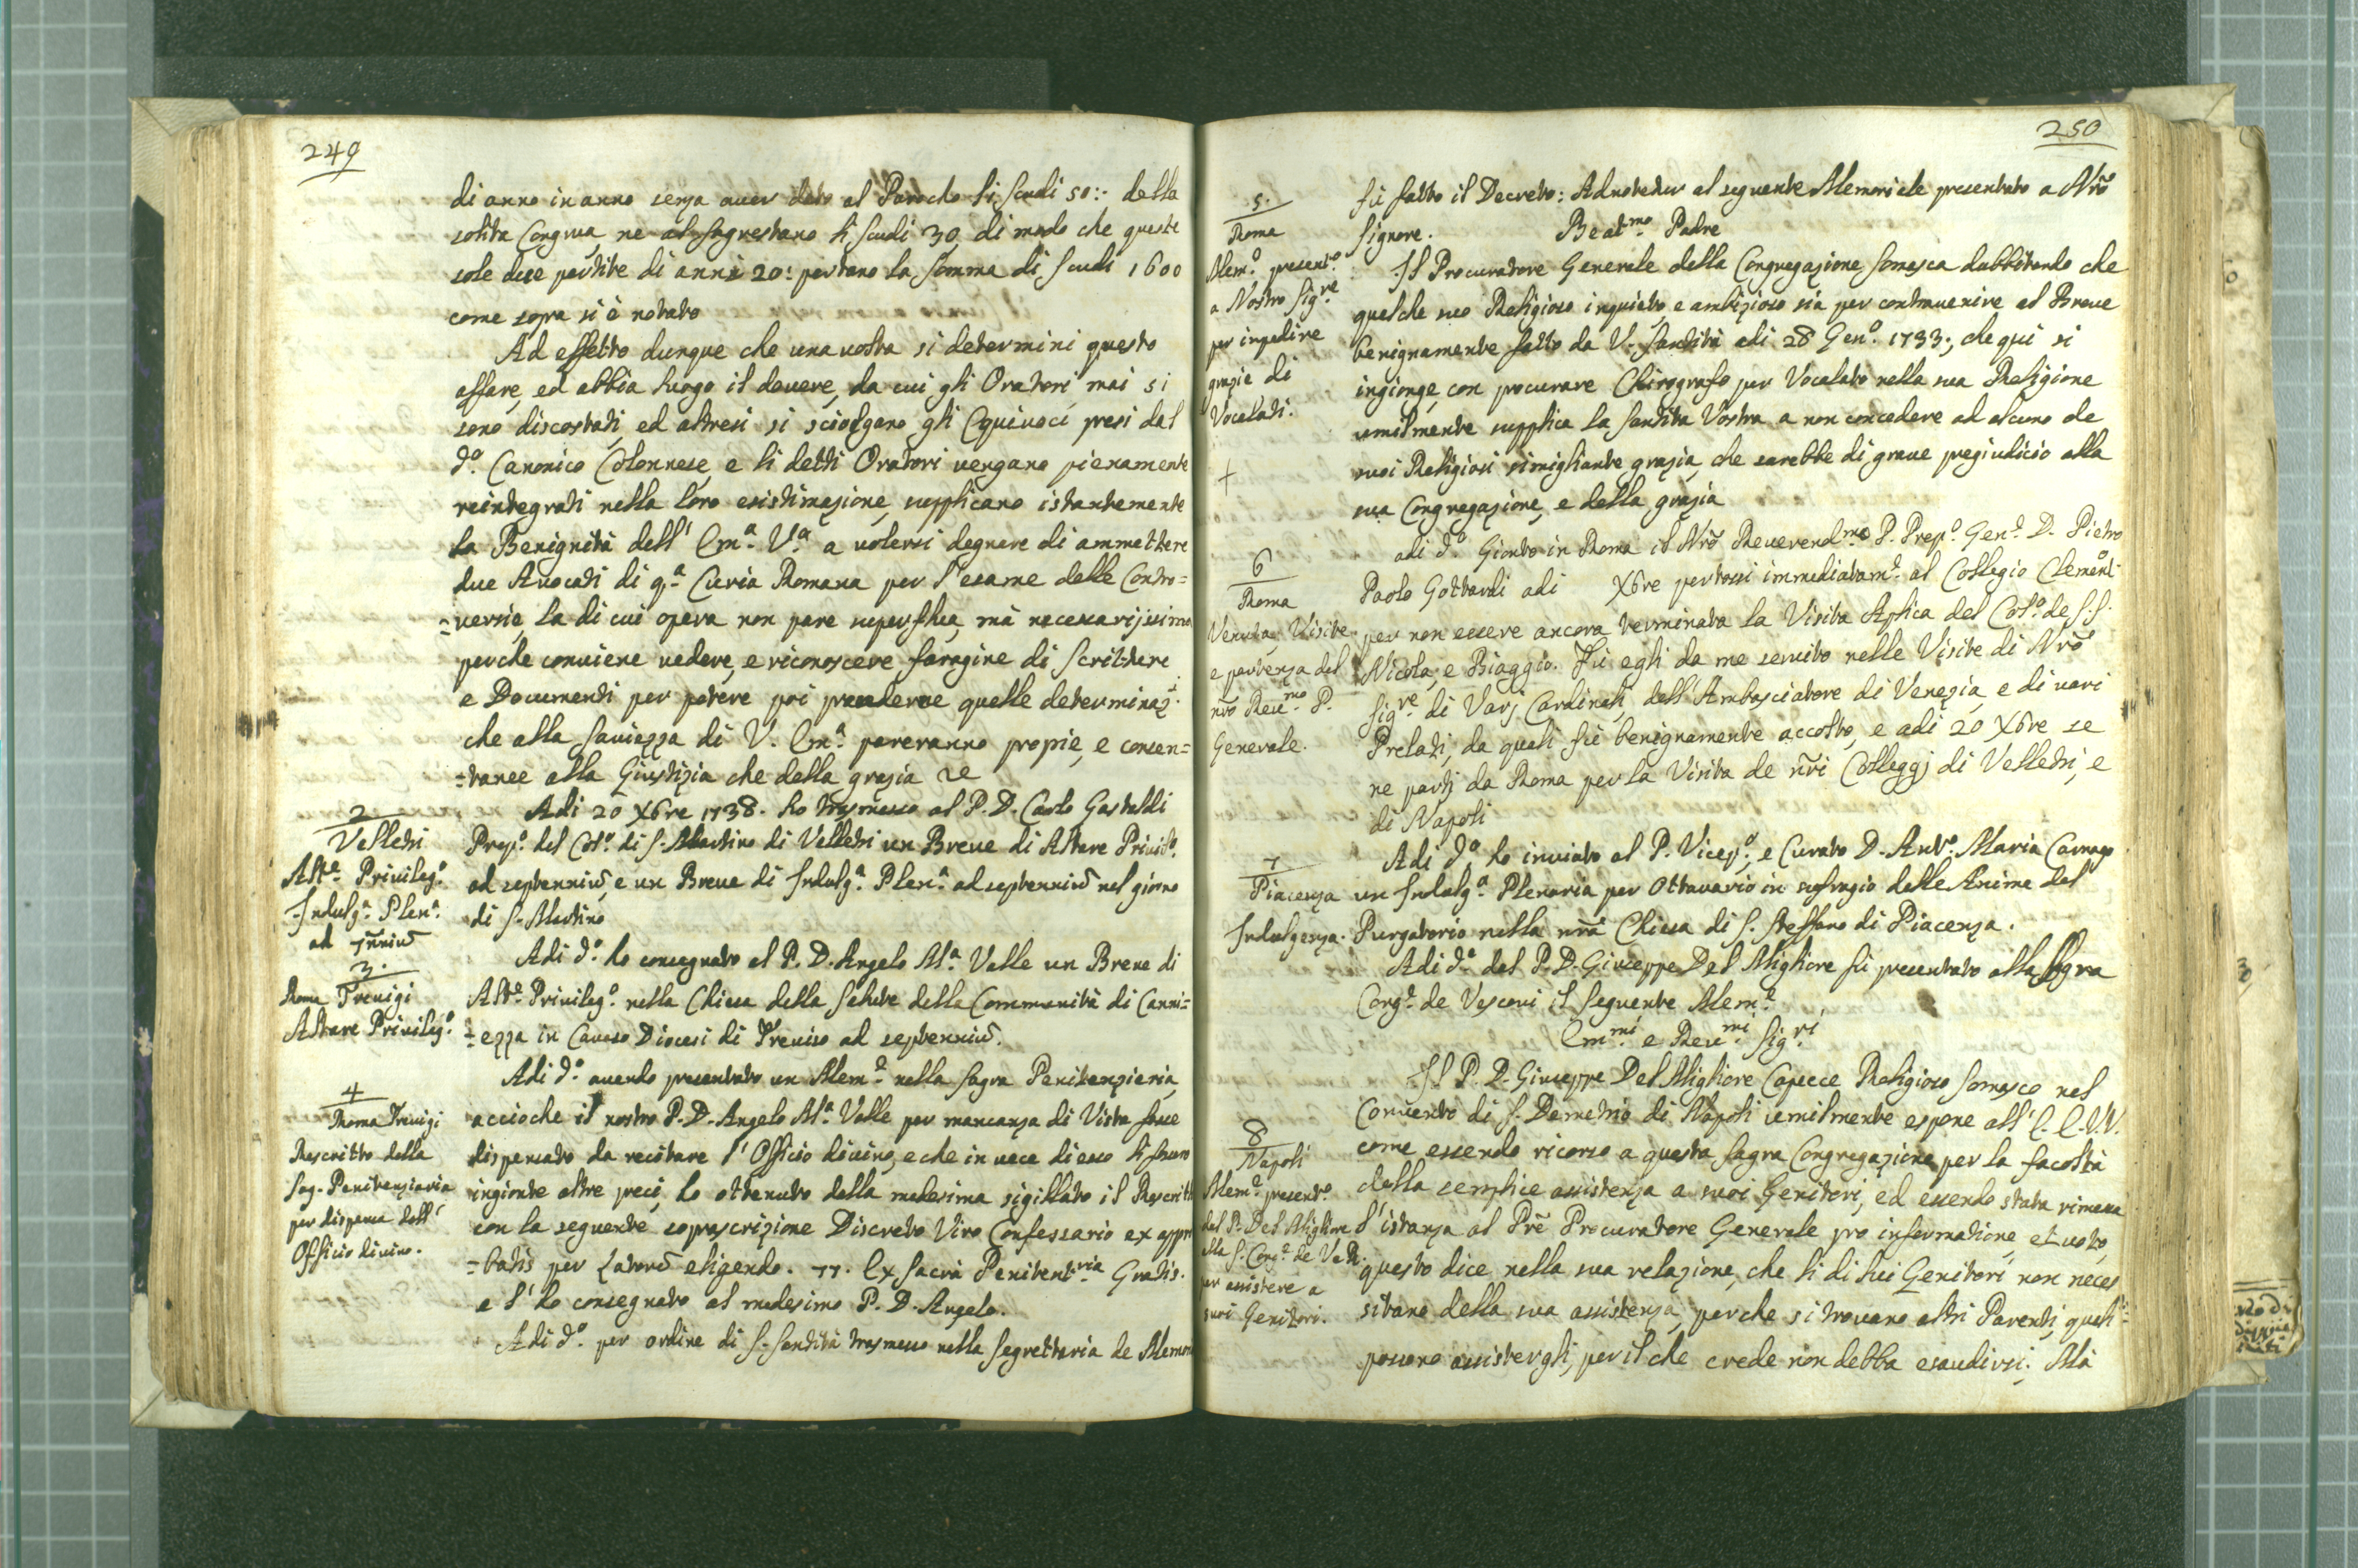 249
di anno in anno senza auer dato al Parocho li Scudi 50:- della
solita Congrua, ne al Sagrestano li Scudi 30, di modo che queste
sole due partite di anni 20: portano la somma di Scudi 1600
come sopra si è notato
Ad effetto dunque che una uolta si determini questo
affare, ed abbia luogo il douere, da cui gli Oratori mai si
sono discostati, ed altresi si sciolgano gli Equiuoci presi dal
dº. Canonico Colonnese, e li detti Oratori uengano pienamente
reintegrati nella loro esistimazione, supplicano istantemente
la Benignità dell' Emª. Vª. a uolersi degnare di ammettere
due Auocati di qª. Curia Romana per l'esame delle Contro=
=uersie, la di cui opera non pare superflua, mà necessarijssima
perche conuiene uedere, e riconoscere faragine di Scritture
e Documenti per potere poi prenderne quelle determinaz:
che alla Sauiezza di V. Emª. pareranno propie, e consen=
=tanee alla Giustizia che della grazia &
2
Velletri
Altº. Priuilegº.
Indulgª. Plenª.
ad 7nniũ
Adi 20 Xbre 1738. ho trasmesso al P. D. Carlo Gastaldi
Prepº. del Colº. di S. Martino di Velletri un Breue di Altare Priuilº.
ad septenniũ, e un Breue di Indulgª. Plenª. ad septenniũ nel giorno
di S. Martino
3.
Roma Treuigi
Altare Priuilegº.
Adi dº. ho consegnato al P. D. Angelo Mª. Valle un Breue di
Altº. Priuilegº. nella Chiesa della Salute della Communità di Canni=
=ezza in Cauaso Diocesi di Treuiso ad septenniũ.
4
Roma Treuigi
Rescritto della
Sag. Penitenziaria
per dispensa dell'
Officio diuino.
Adi dº. auendo presentato un Memº. nella Sagra Penitenzieria,
accioche il nostro P. D. Angelo Mª. Valle per mancanza di Vista fosse
dispensato da recitare l'Officio diuino, e che in uece di esso li fossero
ingionte altre preci, ho ottenuto dalla medesima sigillato il Rescritt
con la seguente soprascrizione Discreto Viro Confessario ex appro
=batis per Latorẽ eligendo. Ex Sacra Penitentria Gratis.
e l'ho consegnato al medesimo P. D. Angelo.
Adi dº. per ordine di S. Santità trasmesso nella Segrettaria de Memori
250
5.
Roma
Memº. presentº.
a Nostro Sigre.
per impedire
grazie di
Vocalati.
+
fù fatto il Decreto: Adnotetur al seguente Memoriale presentato a Nrõ
Signore.
Beatmo. Padre
Il Procuratore Generale della Congregazione Somasca dubbitando che
qualche suo Religioso inquieto, e ambizioso sia per contrauenire al Breue
benignamente fatto da V. Santità adi 28 Genº. 1733; che qui si
ingionge, con procurare Chirografo per Vocalato nella sua Religione
umilmente supplica la Santità Vostra a non concedere ad alcuno de
suoi Religiosi simigliante grazia, che sarebbe di graue pregiudicio alla
sua Congregazione, e della grazia
6
Roma
Venuta, Visite
e partenza del
nrõ Reumo. P.
Generale.
adi dº. Gionto in Roma il Nrõ Reuerendmo. P. Prepº. Genº. D. Pietro
Paolo Gottardi adi Xbre portossi immediatamº. al Collegio Clementº.
per non essere ancora terminata la Visita Aplica del Colº. de S.S.
Nicola, e Biaggio. Fù egli da me seruito nelle Visite di Nrõ
Sigre. di Varj Cardinali, dell'Ambasciatore di Venezia, e di uari
Prelati, da quali fù benignamente accolto, e adi 20 Xbre se
ne partj da Roma per la Visita de nrĩ Colleggj di Velletri, e
di Napoli
7
Piacenza
Indulgenza.
Adi dº. ho inuiato al P. Vicepº., e Curato D. Antº. Maria Carrago
un Indulgª. Plenaria per Ottauario in suffragio delle Anime del
Purgatorio nella nrã Chiesa di S. Steffano di Piacenza.
Adi dº. dal P. D. Giuseppe Del Migliore fù presentato alla Sagra
Congº. de Vescoui il seguente Memº.
Emmi. e Reumi. Sigri.
8
Napoli
Memº. presentº.
dal P. Del Migliore
alla S. Congº. de Vedi.
per assistere a
suoi Genitori.
Il P. D. Giuseppe Del Migliore Capece Religioso Somasco nel
Conuento di S. Demetrio di Napoli umilmente espone all' E. E. V.V.
come essendo ricorso a questa Sagra Congregazione per la facoltà
della semplice assistenza a suoi Genitori, ed essendo stata rimessa
l'istanza al Prẽ Procuratore Generale pro informatione, et uoto,
questo dice nella sua relazione, che li di lui Genitori non neces
sitano della sua assistenza, perche si trouano altri Parenti, quali
possono assistergli, per il che crede non debba esaudirsi; Mà